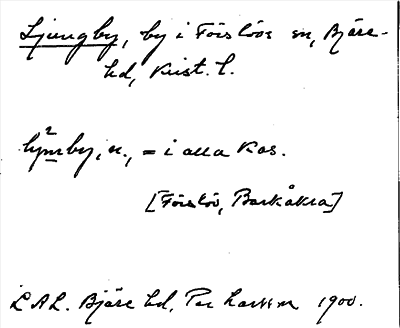 Ljungby, by i Förslövs sn, Bjäre-
hd, Krist. l.
by, n., = i alla kas.
[Förslöv, Barkåkra]
LAL. Bjäre hd, Per Larsson 1900.